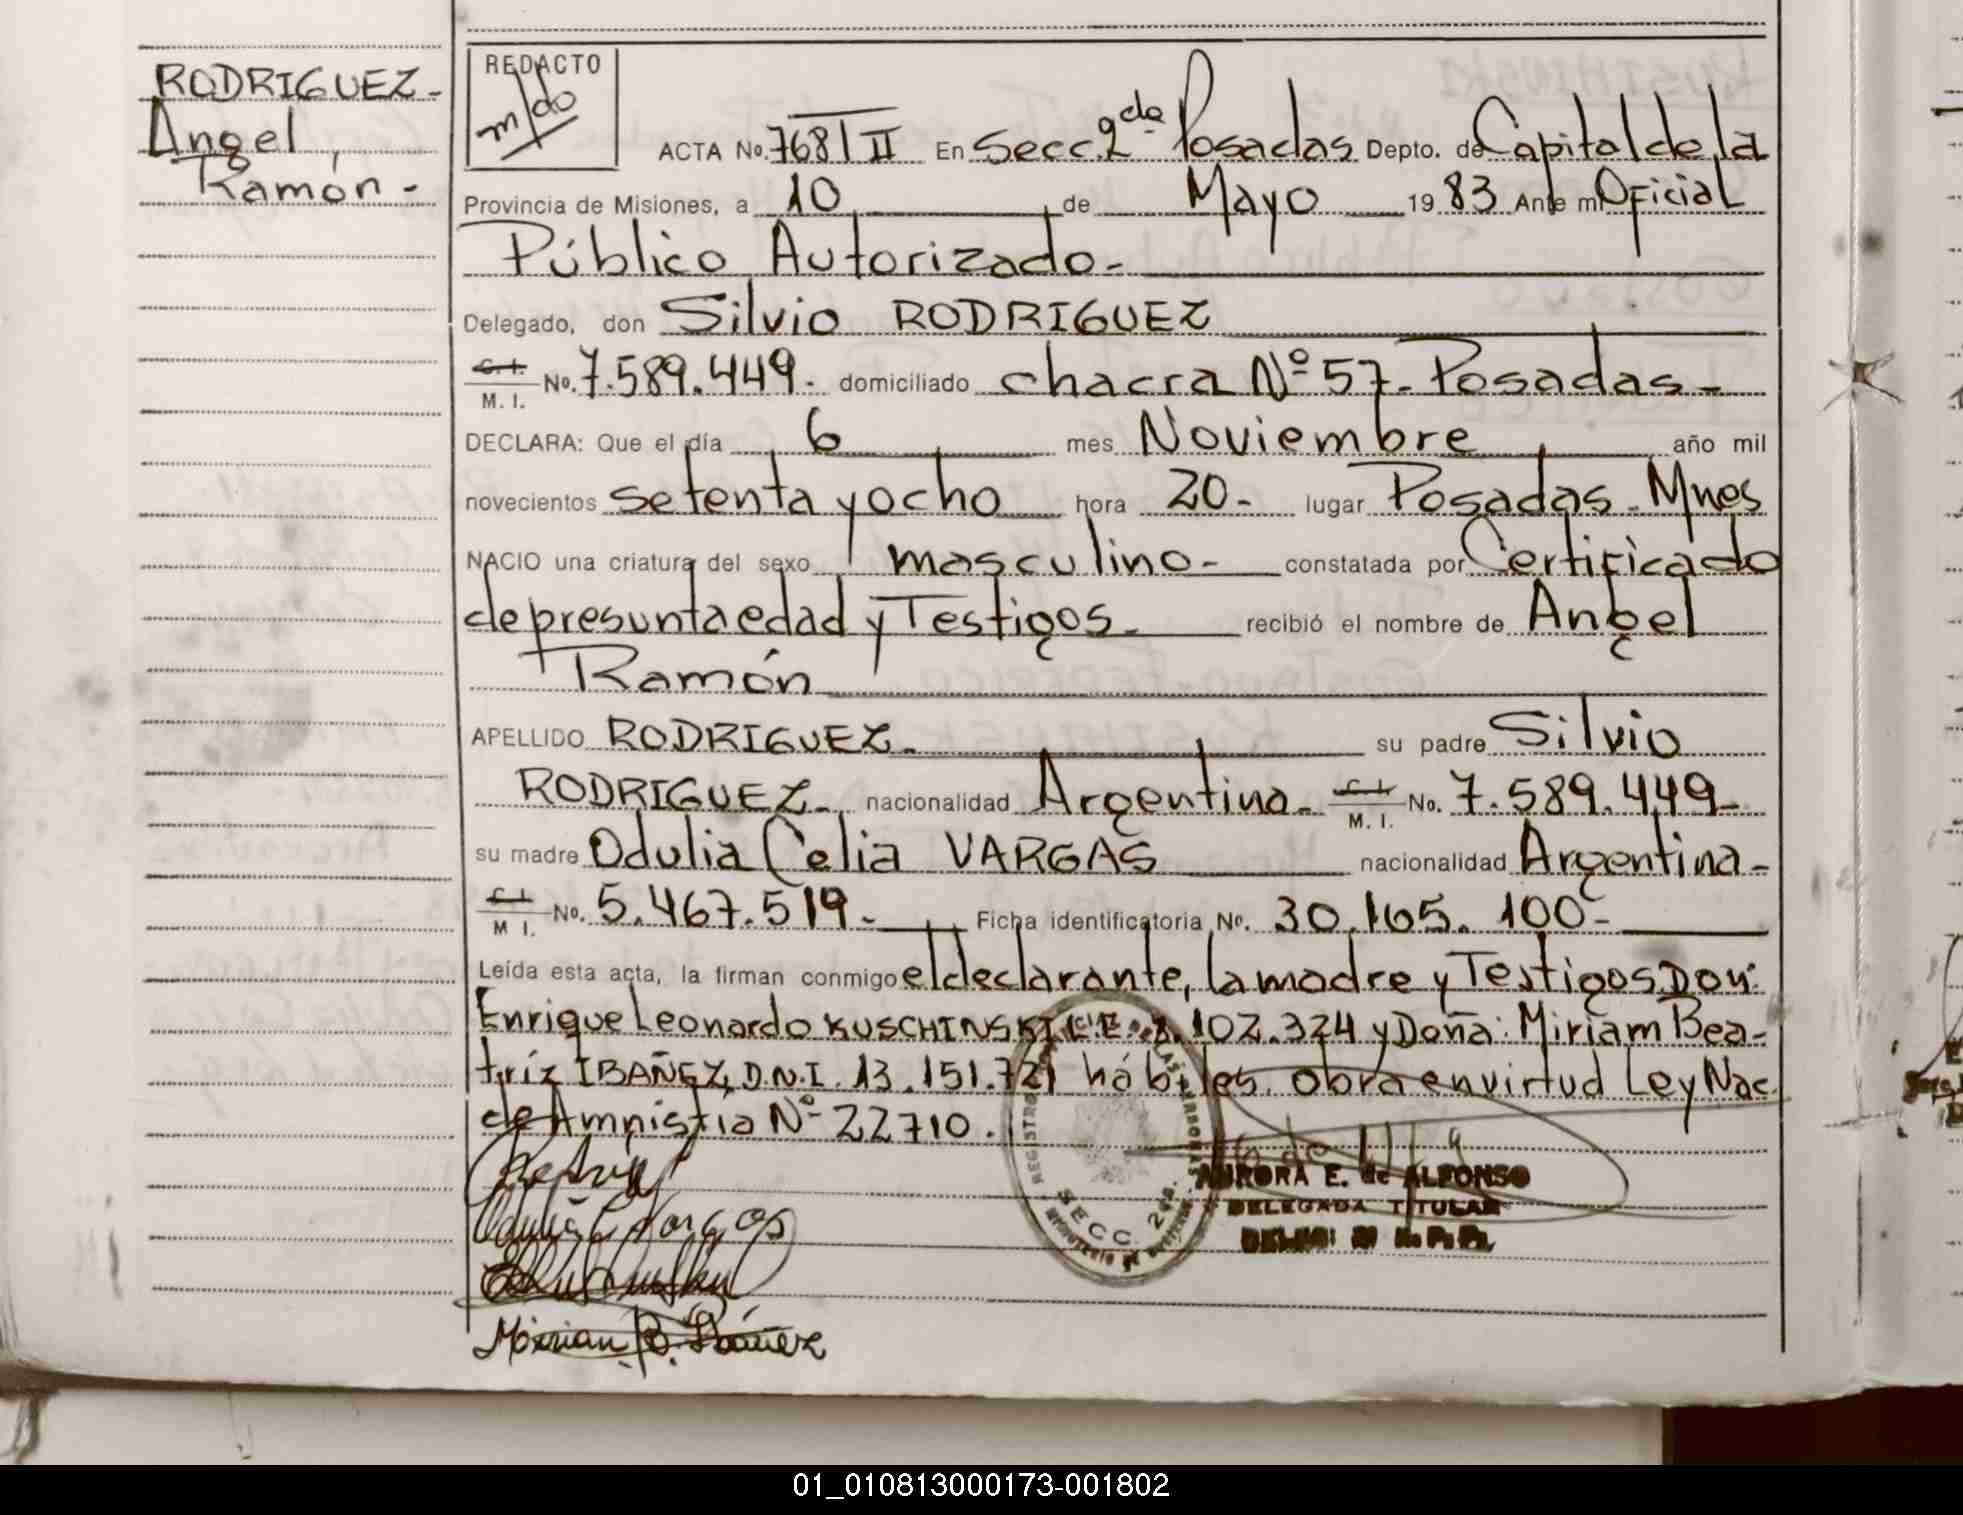 RODRIGUEZ-
Angel,
Ramón-
REDACTO
m/do
ACTA No. 768 / II En Secc. 2da Posadas Depto. de Capital de la
Provincia de Misiones, a 10 de Mayo 1983 Ante mi Oficial
Público Autorizado-
Delegado, don Silvio RODRIGUEZ
C. I.
M. I. No. 7.589.449. domiciliado chacra Nº 57- Posadas-
DECLARA: Que el día 6 mes Noviembre año mil
novecientos setenta y ocho hora 20- lugar Posadas- Mnes
NACIO una criatura del sexo masculino- constatada por Certificado
de presunta edad y Testigos- recibió el nombre de Angel
Ramón
APELLIDO RODRIGUEZ- su padre Silvio
RODRIGUEZ- nacionalidad Argentina- C. I.
M. I. No. 7.589.449-
su madre Odulia Celia VARGAS nacionalidad Argentina-
C. I.
M I. No. 5.467.519- Ficha identificatoria No. 30.165.100-
Leída esta acta, la firman conmigo el declarante, la madre y Testigos Don:
Enrique Leonardo KUSCHINSKI L.E. 8.102.324 y Doña: Miriam Bea-
tríz IBAÑEZ, D.N.I. 13.151.721 hábiles. Obra en virtud Ley Nac.
de Amnistía Nº 22710.
AURORA E. de ALFONSO
DELEGADA TITULAR
SECC. 2da.
Miriam B. Ibáñez
01_010813000173-001802